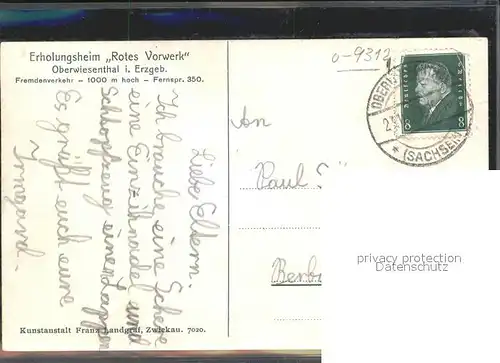 Erholungsheim „Rotes Vorwerk"
Oberwiesenthal i. Erzgeb.
Fremdenverkehr — 1000 m hoch — Fernspr. 350.
Liebe Eltern.
Ich brauche eine Schere
eine Einziehnadel und
einen Lappen
Es grüßt euch eure
Irmgard.
Kunstanstalt Franz Landgraf, Zwickau. 7020.
0-9312
Deutsches Reich
8 8
OBERW
(SACHSEN)
An
Paul
privacy protection
Datenschutz